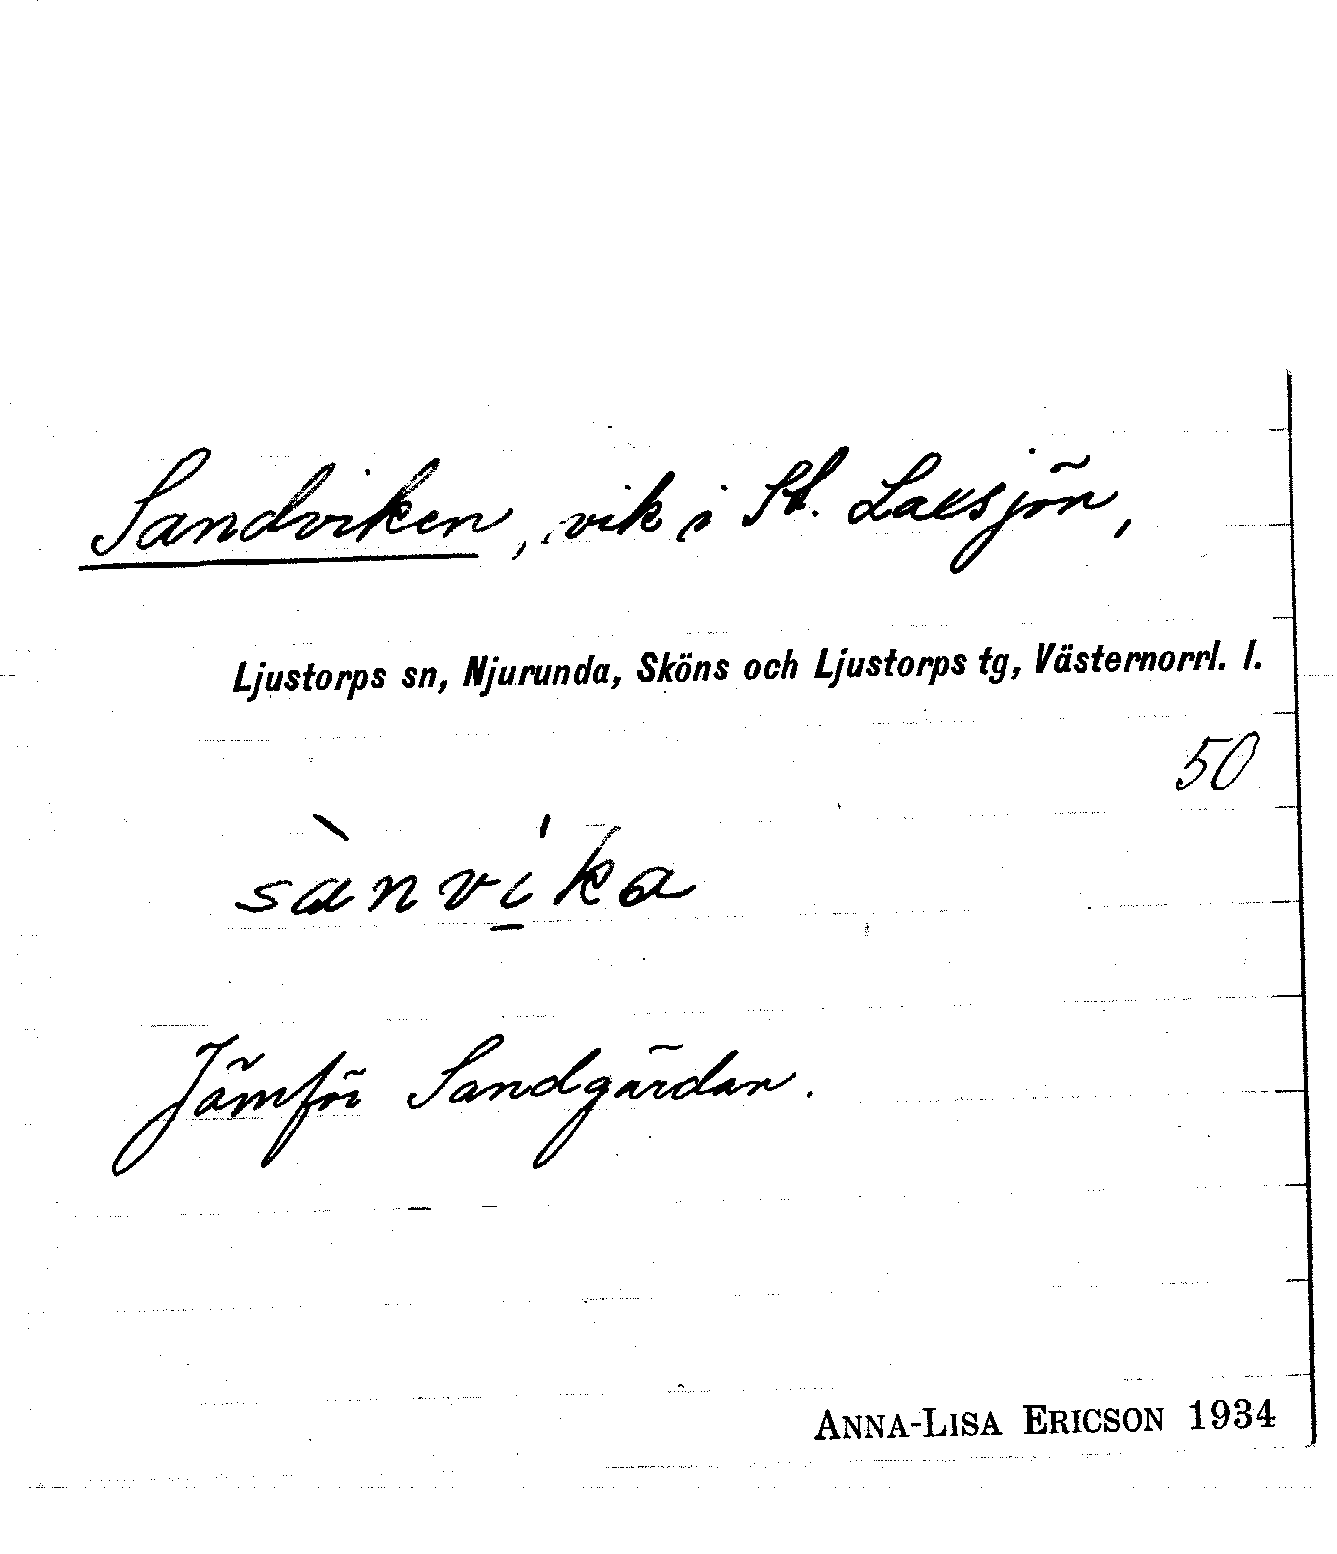 Sandviken, vik i St. Laxsjön,
Ljustorps sn, Njurunda, Sköns och Ljustorps tg, Västernorrl. l.
50
sànvi̱ka
Jämför Sandgärdan.
ANNA-LISA ERICSON 1934